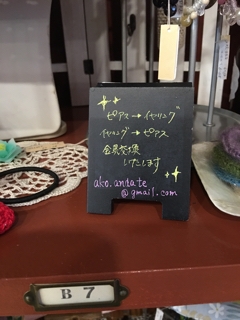 ピアス→イヤリング
イヤリング→ピアス
金具交換
いたします
ako.andate
@gmail.com
B 7